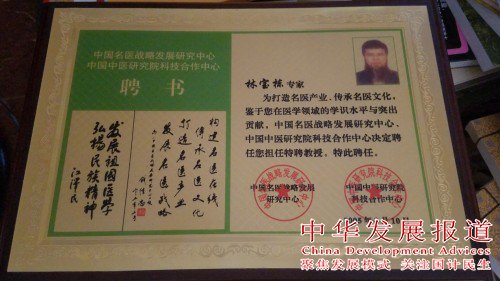 中国名医战略发展研究中心
中国中医研究院科技合作中心
聘 书
构建名医在线
传承名医文化
打造名医产业
发展名医战略
发展祖国医学
弘扬民族精神
江泽民
林宝栋 专家
为打造名医产业、传承名医文化,
鉴于您在医学领域的学识水平与突出
贡献,中国名医战略发展研究中心、
中国中医研究院科技合作中心决定聘
任您担任特聘教授。特此聘任。
中国名医战略发展
研究中心
中国中医研究院
科技合作中心
中华发展报道
China Development Advices
聚焦发展模式 关注国计民生